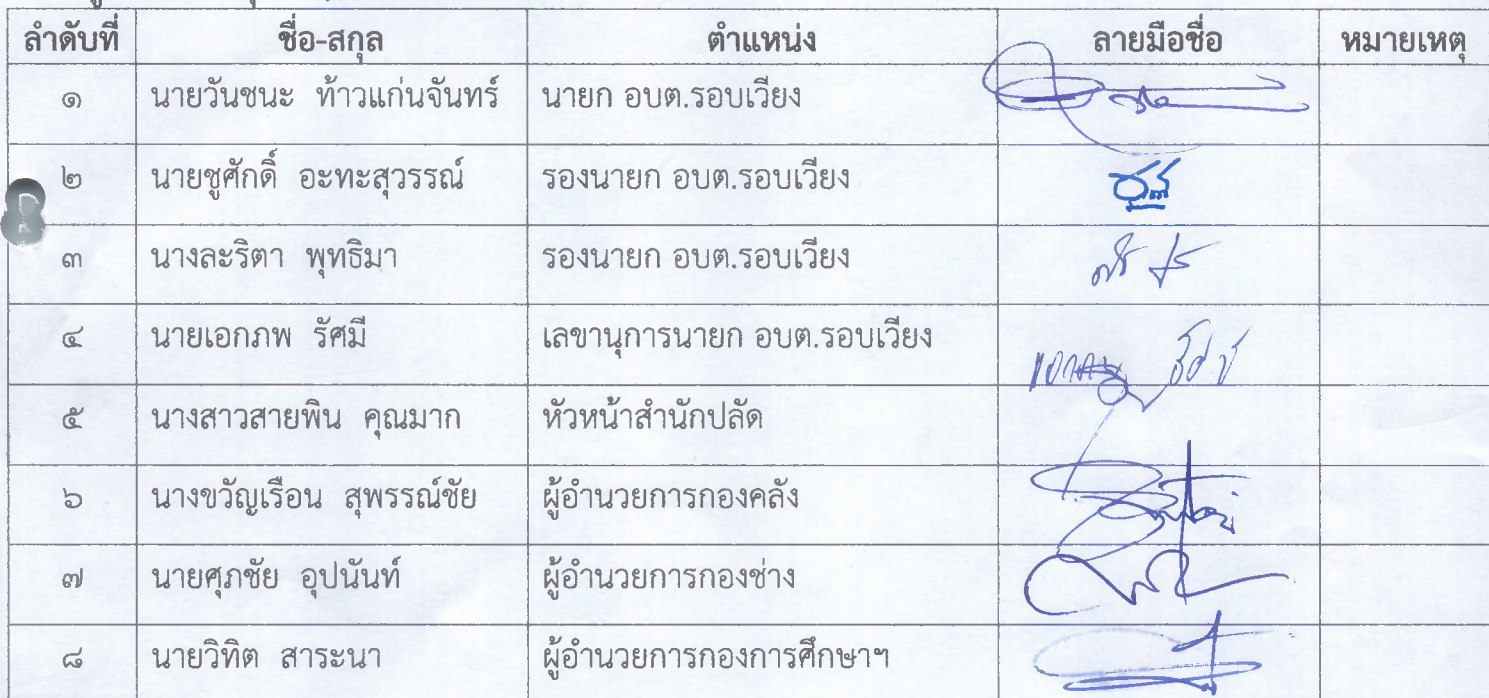 ลำดับที่ ชื่อ-สกุล ตำแหน่ง ลายมือชื่อ หมายเหตุ
๑ นายวันชนะ ท้าวแก่นจันทร์ นายก อบต.รอบเวียง
๒ นายชูศักดิ์ อะทะสุวรรณ์ รองนายก อบต.รอบเวียง
๓ นางละริตา พุทธิมา รองนายก อบต.รอบเวียง
๔ นายเอกภพ รัศมี เลขานุการนายก อบต.รอบเวียง
๕ นางสาวสายพิน คุณมาก หัวหน้าสำนักปลัด
๖ นางขวัญเรือน สุพรรณ์ชัย ผู้อำนวยการกองคลัง
๗ นายศุภชัย อุปนันท์ ผู้อำนวยการกองช่าง
๘ นายวิทิต สาระนา ผู้อำนวยการกองการศึกษาฯ